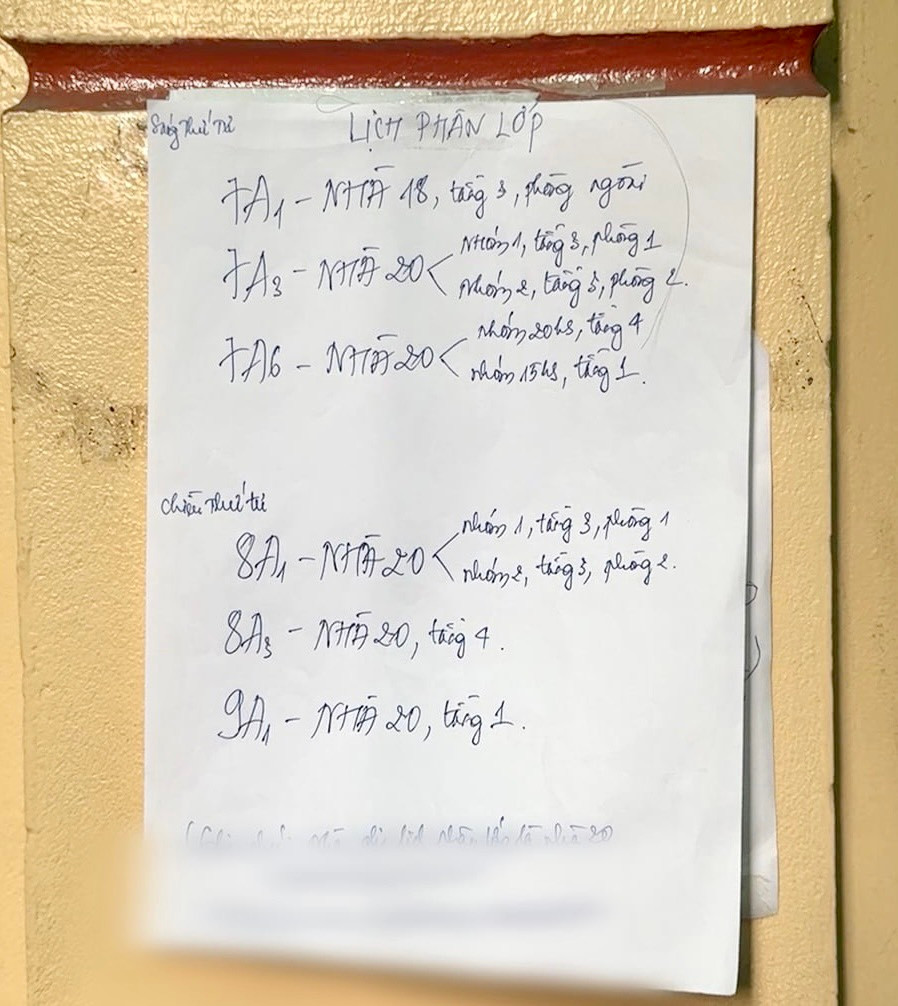 Sáng thứ tư
LỊCH PHÂN LỚP
7A1 - NHÀ 18, tầng 3, phòng ngoài
7A3 - NHÀ 20 < Nhóm 1, tầng 3, phòng 1
nhóm 2, tầng 3, phòng 2.
7A6 - NHÀ 20 < nhóm 20hs, tầng 4
nhóm 15hs, tầng 1.
Chiều thứ tư
8A1 - NHÀ 20 < nhóm 1, tầng 3, phòng 1
nhóm 2, tầng 3, phòng 2.
8A3 - NHÀ 20, tầng 4.
9A1 - NHÀ 20, tầng 1.
nhà 20